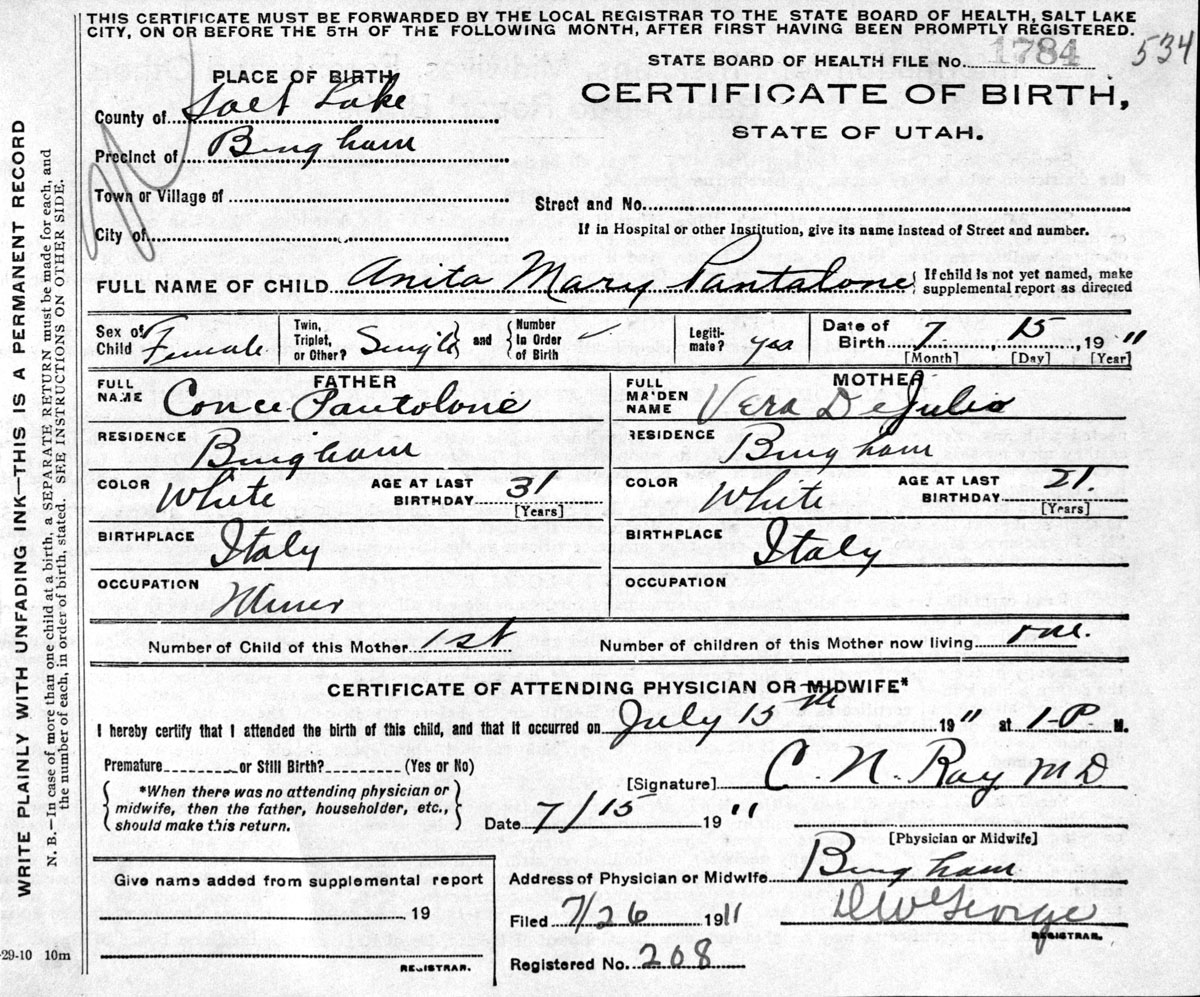 THIS CERTIFICATE MUST BE FORWARDED BY THE LOCAL REGISTRAR TO THE STATE BOARD OF HEALTH, SALT LAKE
CITY, ON OR BEFORE THE 5TH OF THE FOLLOWING MONTH, AFTER FIRST HAVING BEEN PROMPTLY REGISTERED.
STATE BOARD OF HEALTH FILE No. 1784 534
PLACE OF BIRTH
CERTIFICATE OF BIRTH,
STATE OF UTAH.
County of Salt Lake
Precinct of Bingham
Town or Village of
Street and No.
City of
If in Hospital or other Institution, give its name instead of Street and number.
FULL NAME OF CHILD Anita Mary Pantalone { If child is not yet named, make supplemental report as directed
Sex of Child Female Twin, Triplet, or Other? Single } and { Number in Order of Birth Legiti-mate? yes Date of Birth 7 15, 19 11
[Month] [Day] [Year]
FATHER MOTHER
FULL NAME Conce Pantolone FULL MAIDEN NAME Vera DeJulio
RESIDENCE Bingham RESIDENCE Bingham
COLOR White AGE AT LAST BIRTHDAY 31 [Years] COLOR White AGE AT LAST BIRTHDAY 21. [Years]
BIRTHPLACE Italy BIRTHPLACE Italy
OCCUPATION Miner OCCUPATION
Number of Child of this Mother 1st Number of children of this Mother now living one.
CERTIFICATE OF ATTENDING PHYSICIAN OR MIDWIFE*
I hereby certify that I attended the birth of this child, and that it occurred on July 15th 19 11 at 1-P. M.
Premature or Still Birth? (Yes or No)
[Signature] C. N. Ray M D
*When there was no attending physician or
midwife, then the father, householder, etc.,
should make this return.
Date 7/15 19 11
[Physician or Midwife]
Address of Physician or Midwife Bingham
Give name added from supplemental report
19
REGISTRAR.
Filed 7/26 1911 D W George
REGISTRAR.
Registered No. 208
-29-10 10m
WRITE PLAINLY WITH UNFADING INK—THIS IS A PERMANENT RECORD
N. B.—In case of more than one child at a birth, a SEPARATE RETURN must be made for each, and
the number of each, in order of birth, stated. SEE INSTRUCTIONS ON OTHER SIDE.